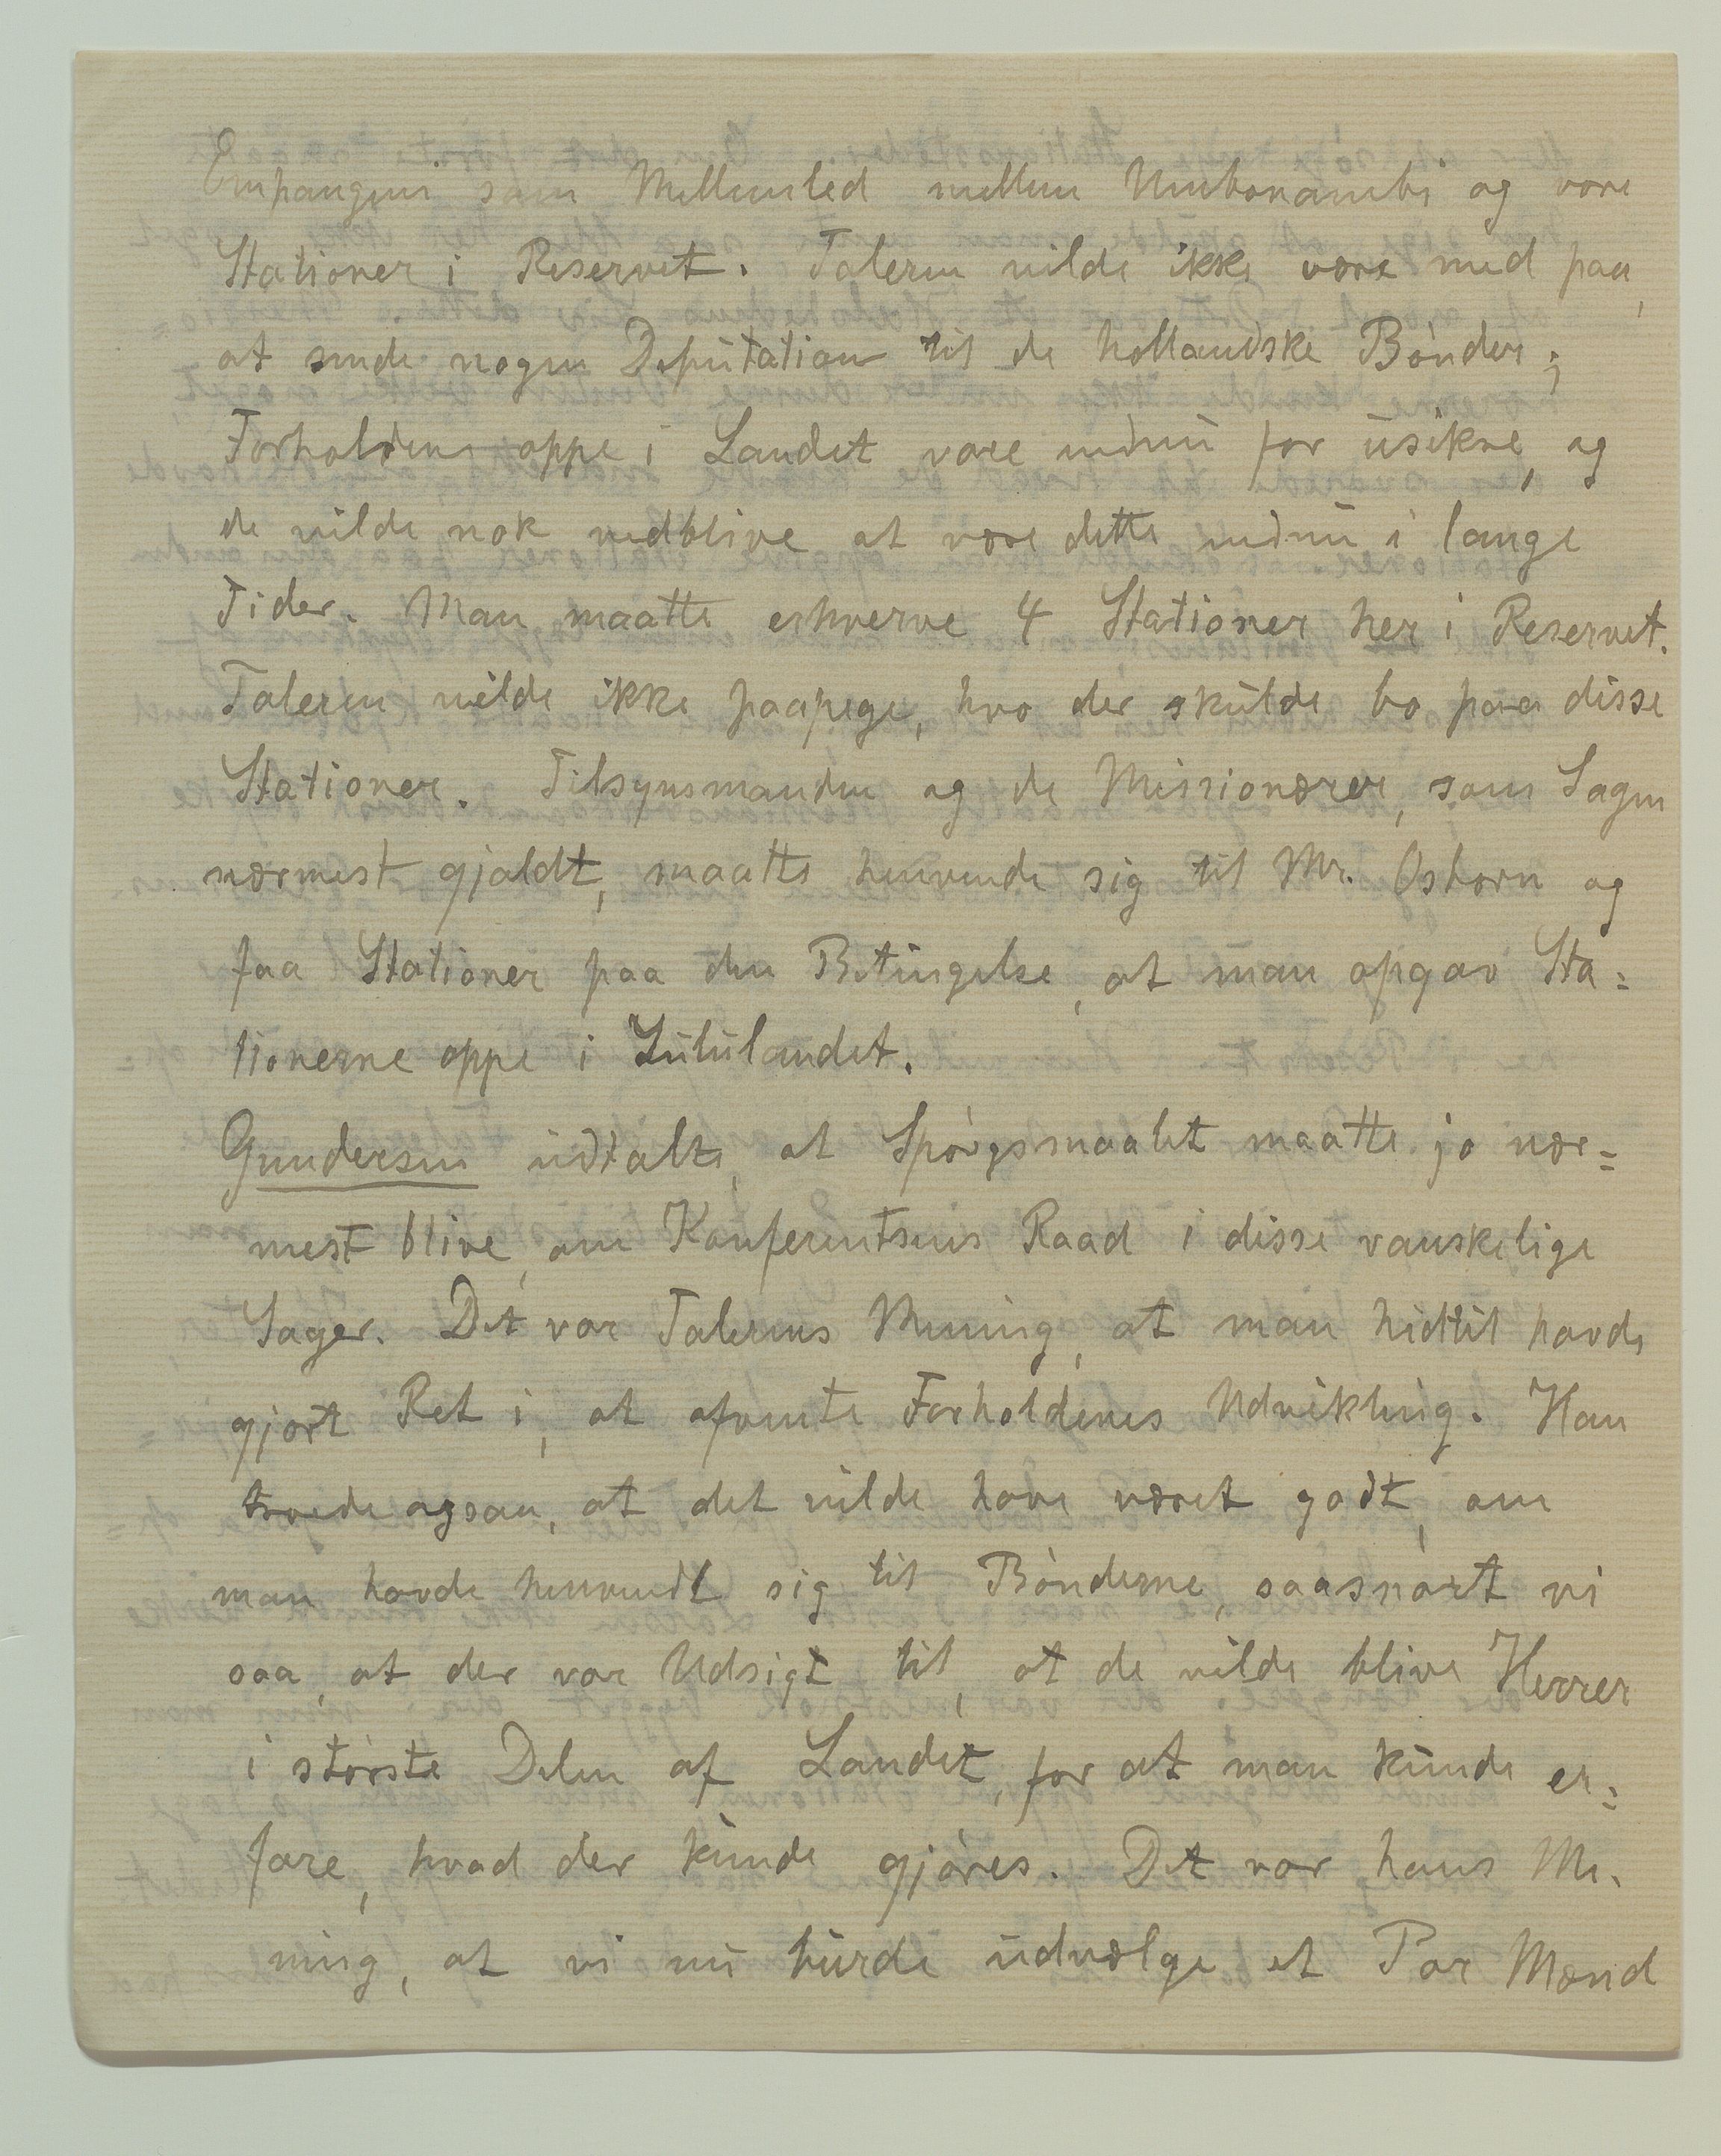 Empangeni som Mellemled mellem Umbonambi og vore
Stationer i Reservet. Taleren vilde ikke være med paa,
at sende nogen Deputation til de hollandske Bönder;
Forholdene oppe i Landet vare endnu for usikre, og
de vilde nok vedblive at være dette endnu i lange
Tider. Man maatte erhverve 4 Stationer her i Reservet.
Taleren vilde ikke paapege, hvo der skulde bo paa disse
Stationer. Tilsynsmanden og de Missionærer, som Sagen
nærmest gjaldt, maatte henvende sig til Mr. Osborn og
faa Stationer paa den Betingelse, at man opgav Sta=
tionerne oppe i Zululandet.
Gundersen udtalte, at Spörgsmaalet maatte jo nær=
mest blive, om Konferentsens Raad i disse vanskelige
Sager. Det var Talerens Mening, at man hidtil havde
gjort Ret i, at afvente Forholdenes Udvikling. Han
troede ogsaa, at det vilde have været godt, om
man havde henvendt sig til Bönderne, saasnart vi
saa, at der var Udsigt til, at de vilde blive Herrer
i störste Delen af Landet, for at man kunde er=
fare, hvad der kunde gjöres. Det var hans Me=
ning, at vi nu burde udvælge et Par Mænd